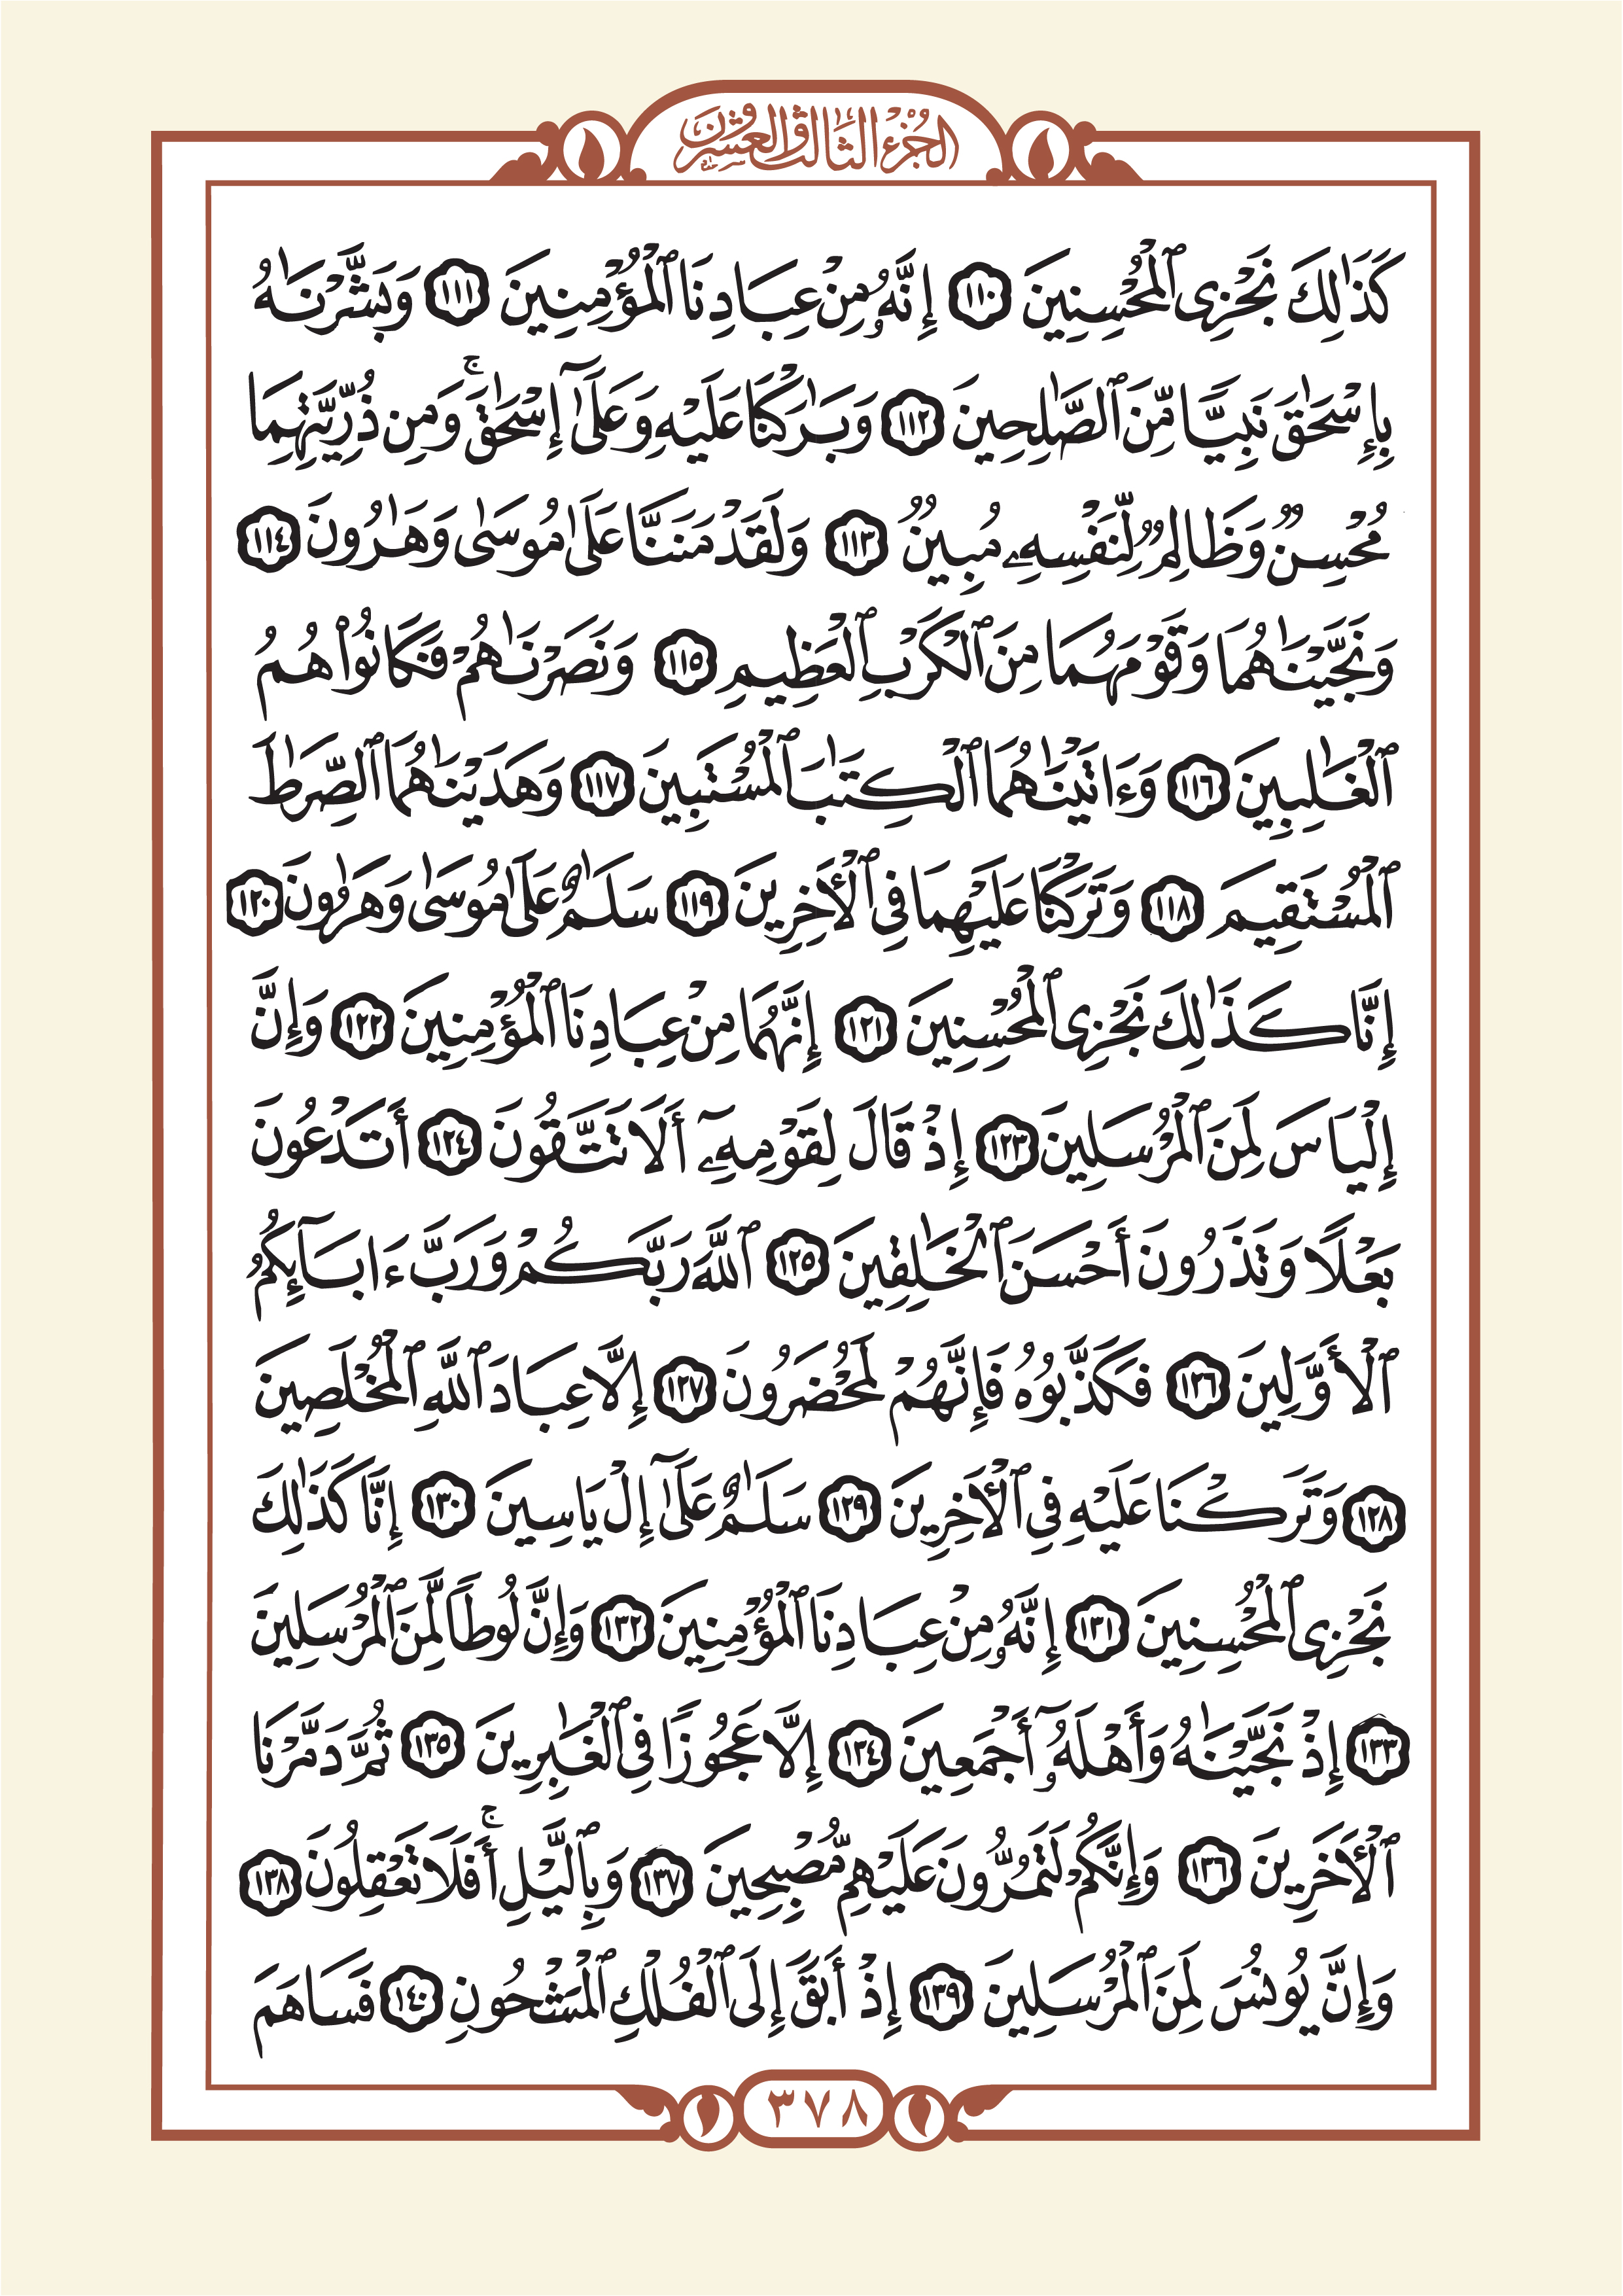 الجزء الثالث والعشرون
كَذَٰلِكَ نَجْزِى ٱلْمُحْسِنِينَ ١١٠ إِنَّهُۥ مِنْ عِبَادِنَا ٱلْمُؤْمِنِينَ ١١١ وَبَشَّرْنَٰهُ
بِإِسْحَٰقَ نَبِيًّا مِّنَ ٱلصَّٰلِحِينَ ١١٢ وَبَٰرَكْنَا عَلَيْهِ وَعَلَىٰٓ إِسْحَٰقَ ۚ وَمِن ذُرِّيَّتِهِمَا
مُحْسِنٌ وَظَالِمٌ لِّنَفْسِهِۦ مُبِينٌ ١١٣ وَلَقَدْ مَنَنَّا عَلَىٰ مُوسَىٰ وَهَٰرُونَ ١١٤
وَنَجَّيْنَٰهُمَا وَقَوْمَهُمَا مِنَ ٱلْكَرْبِ ٱلْعَظِيمِ ١١٥ وَنَصَرْنَٰهُمْ فَكَانُوا۟ هُمُ
ٱلْغَٰلِبِينَ ١١٦ وَءَاتَيْنَٰهُمَا ٱلْكِتَٰبَ ٱلْمُسْتَبِينَ ١١٧ وَهَدَيْنَٰهُمَا ٱلصِّرَٰطَ
ٱلْمُسْتَقِيمَ ١١٨ وَتَرَكْنَا عَلَيْهِمَا فِى ٱلْأَخِرِينَ ١١٩ سَلَٰمٌ عَلَىٰ مُوسَىٰ وَهَٰرُونَ ١٢٠
إِنَّا كَذَٰلِكَ نَجْزِى ٱلْمُحْسِنِينَ ١٢١ إِنَّهُمَا مِنْ عِبَادِنَا ٱلْمُؤْمِنِينَ ١٢٢ وَإِنَّ
إِلْيَاسَ لَمِنَ ٱلْمُرْسَلِينَ ١٢٣ إِذْ قَالَ لِقَوْمِهِۦٓ أَلَا تَتَّقُونَ ١٢٤ أَتَدْعُونَ
بَعْلًا وَتَذَرُونَ أَحْسَنَ ٱلْخَٰلِقِينَ ١٢٥ ٱللَّهَ رَبَّكُمْ وَرَبَّ ءَابَآئِكُمُ
ٱلْأَوَّلِينَ ١٢٦ فَكَذَّبُوهُ فَإِنَّهُمْ لَمُحْضَرُونَ ١٢٧ إِلَّا عِبَادَ ٱللَّهِ ٱلْمُخْلَصِينَ
١٢٨ وَتَرَكْنَا عَلَيْهِ فِى ٱلْأَخِرِينَ ١٢٩ سَلَٰمٌ عَلَىٰٓ إِلْ يَاسِينَ ١٣٠ إِنَّا كَذَٰلِكَ
نَجْزِى ٱلْمُحْسِنِينَ ١٣١ إِنَّهُۥ مِنْ عِبَادِنَا ٱلْمُؤْمِنِينَ ١٣٢ وَإِنَّ لُوطًا لَّمِنَ ٱلْمُرْسَلِينَ
١٣٣ إِذْ نَجَّيْنَٰهُ وَأَهْلَهُۥٓ أَجْمَعِينَ ١٣٤ إِلَّا عَجُوزًا فِى ٱلْغَٰبِرِينَ ١٣٥ ثُمَّ دَمَّرْنَا
ٱلْأَخَرِينَ ١٣٦ وَإِنَّكُمْ لَتَمُرُّونَ عَلَيْهِم مُّصْبِحِينَ ١٣٧ وَبِٱلَّيْلِ ۚ أَفَلَا تَعْقِلُونَ ١٣٨
وَإِنَّ يُونُسَ لَمِنَ ٱلْمُرْسَلِينَ ١٣٩ إِذْ أَبَقَ إِلَى ٱلْفُلْكِ ٱلْمَشْحُونِ ١٤٠ فَسَاهَمَ
٣٧٨